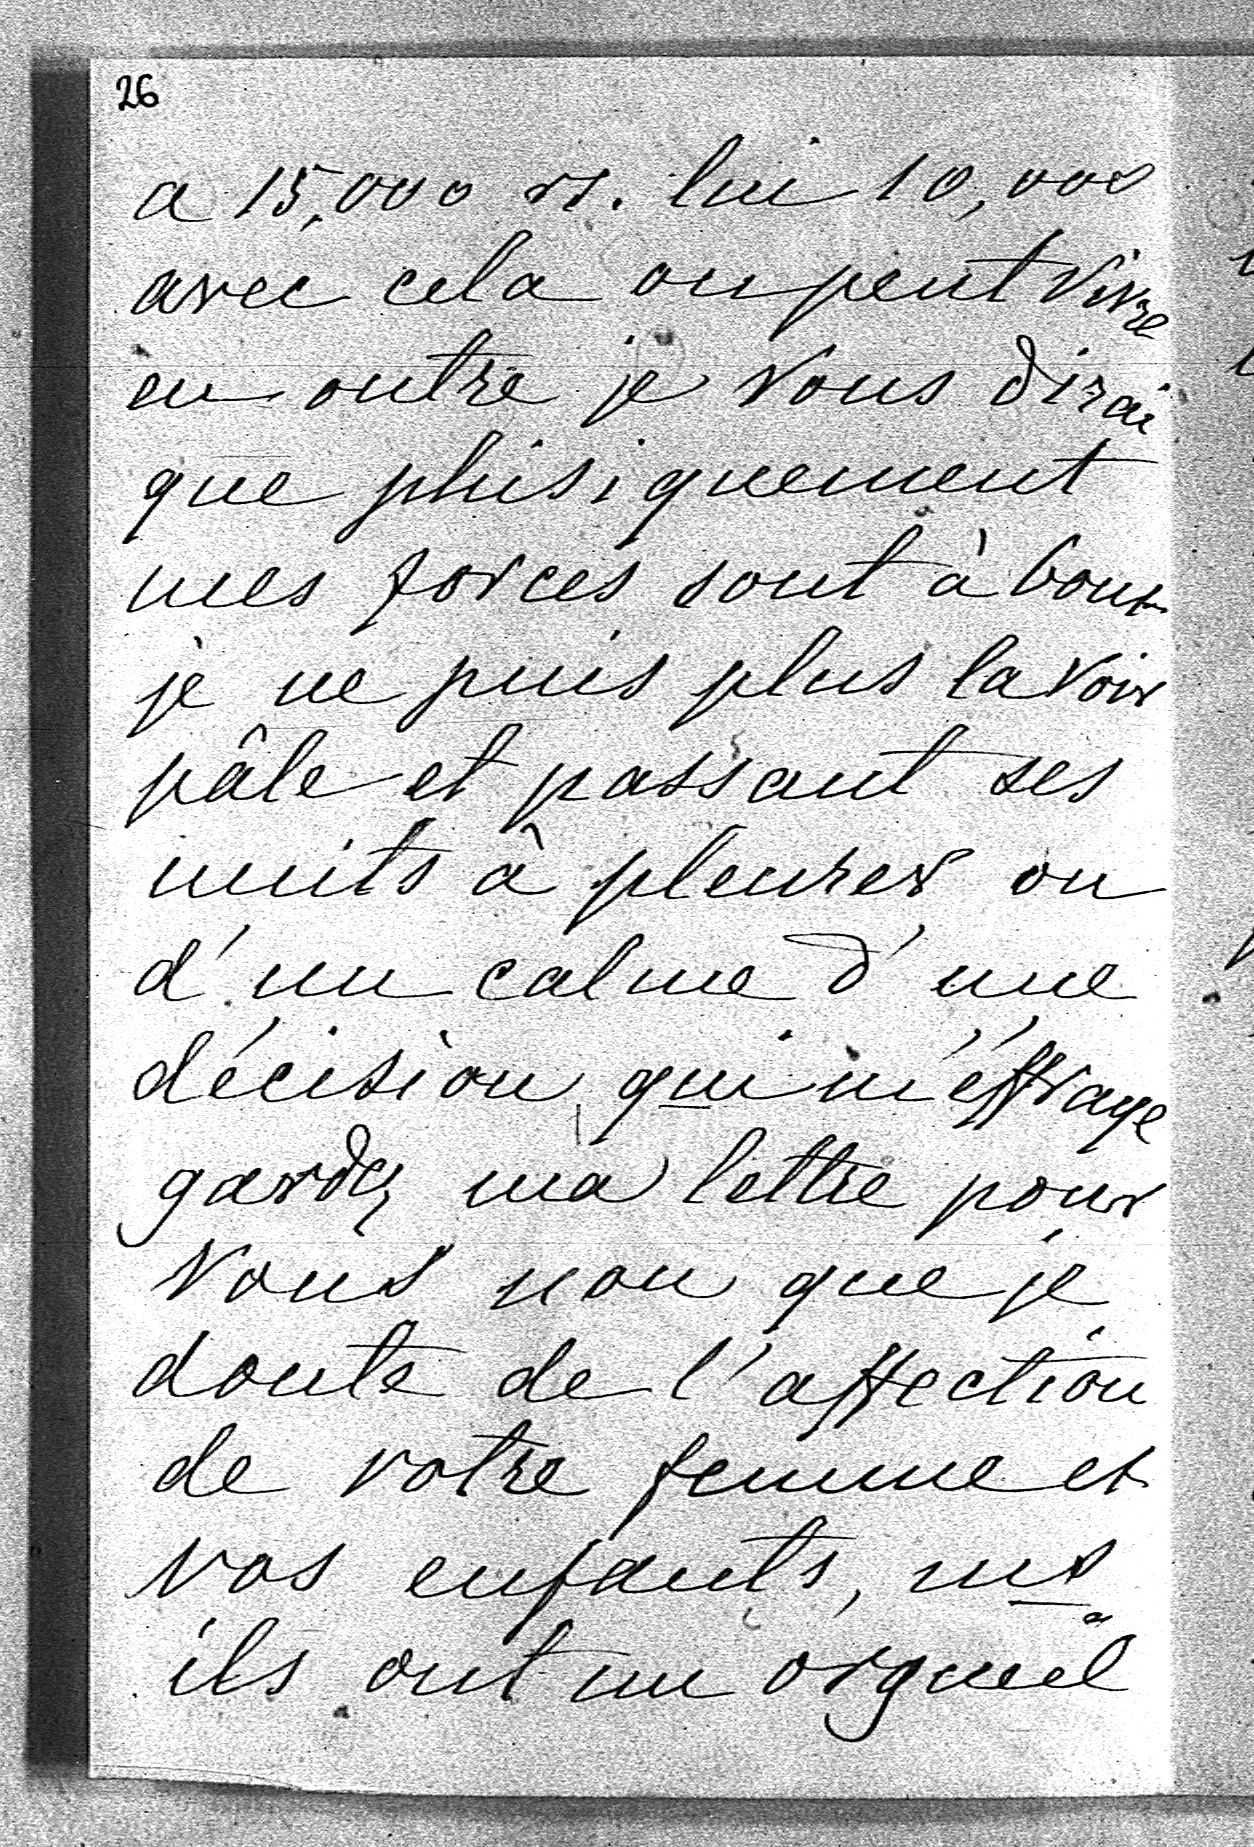 26
a 15,000 rs. lui 10,000
avec cela on peut vivre
en outre je vous dirai
que phisiquement
mes forces sont à bout
je ne puis plus la voir
pâle et passant ses
nuits à pleurer ou
d'un calme d'une
décision qui m'éffraye
gardez ma lettre pour
vous non que je
doute de l'affection
de votre femme et
vos enfants, ms
ils ont un orgueil